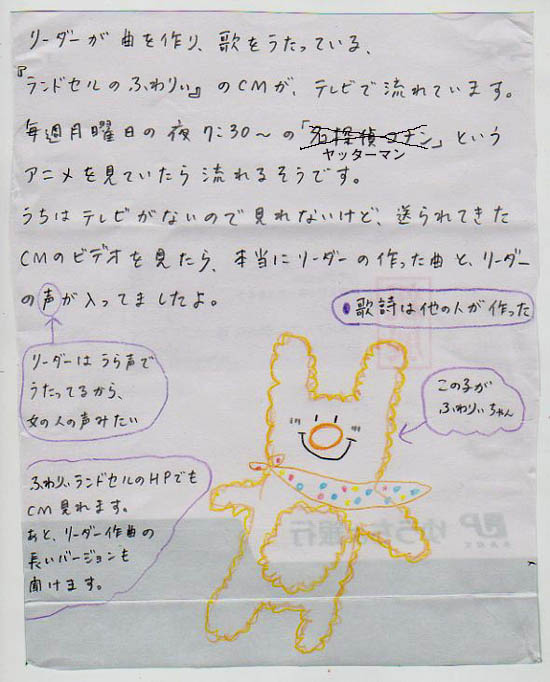 リーダーが曲を作り、歌をうたっている、
『ランドセルのふわりぃ』のCMが、テレビで流れています。
毎週月曜日の夜7:30〜の「名探偵コナン」という
ヤッターマン
アニメを見ていたら流れるそうです。
うちはテレビがないので見れないけど、送られてきた
CMのビデオを見たら、本当にリーダーの作った曲と、リーダー
の声が入ってましたよ。
●歌詩は他の人が作った
リーダーはうら声で
うたってるから、
女の人の声みたい
この子が
ふわりぃちゃん
ふわりぃランドセルのHPでも
CM見れます。
あと、リーダー作曲の
長いバージョンも
聞けます。
ゆうちょ銀行